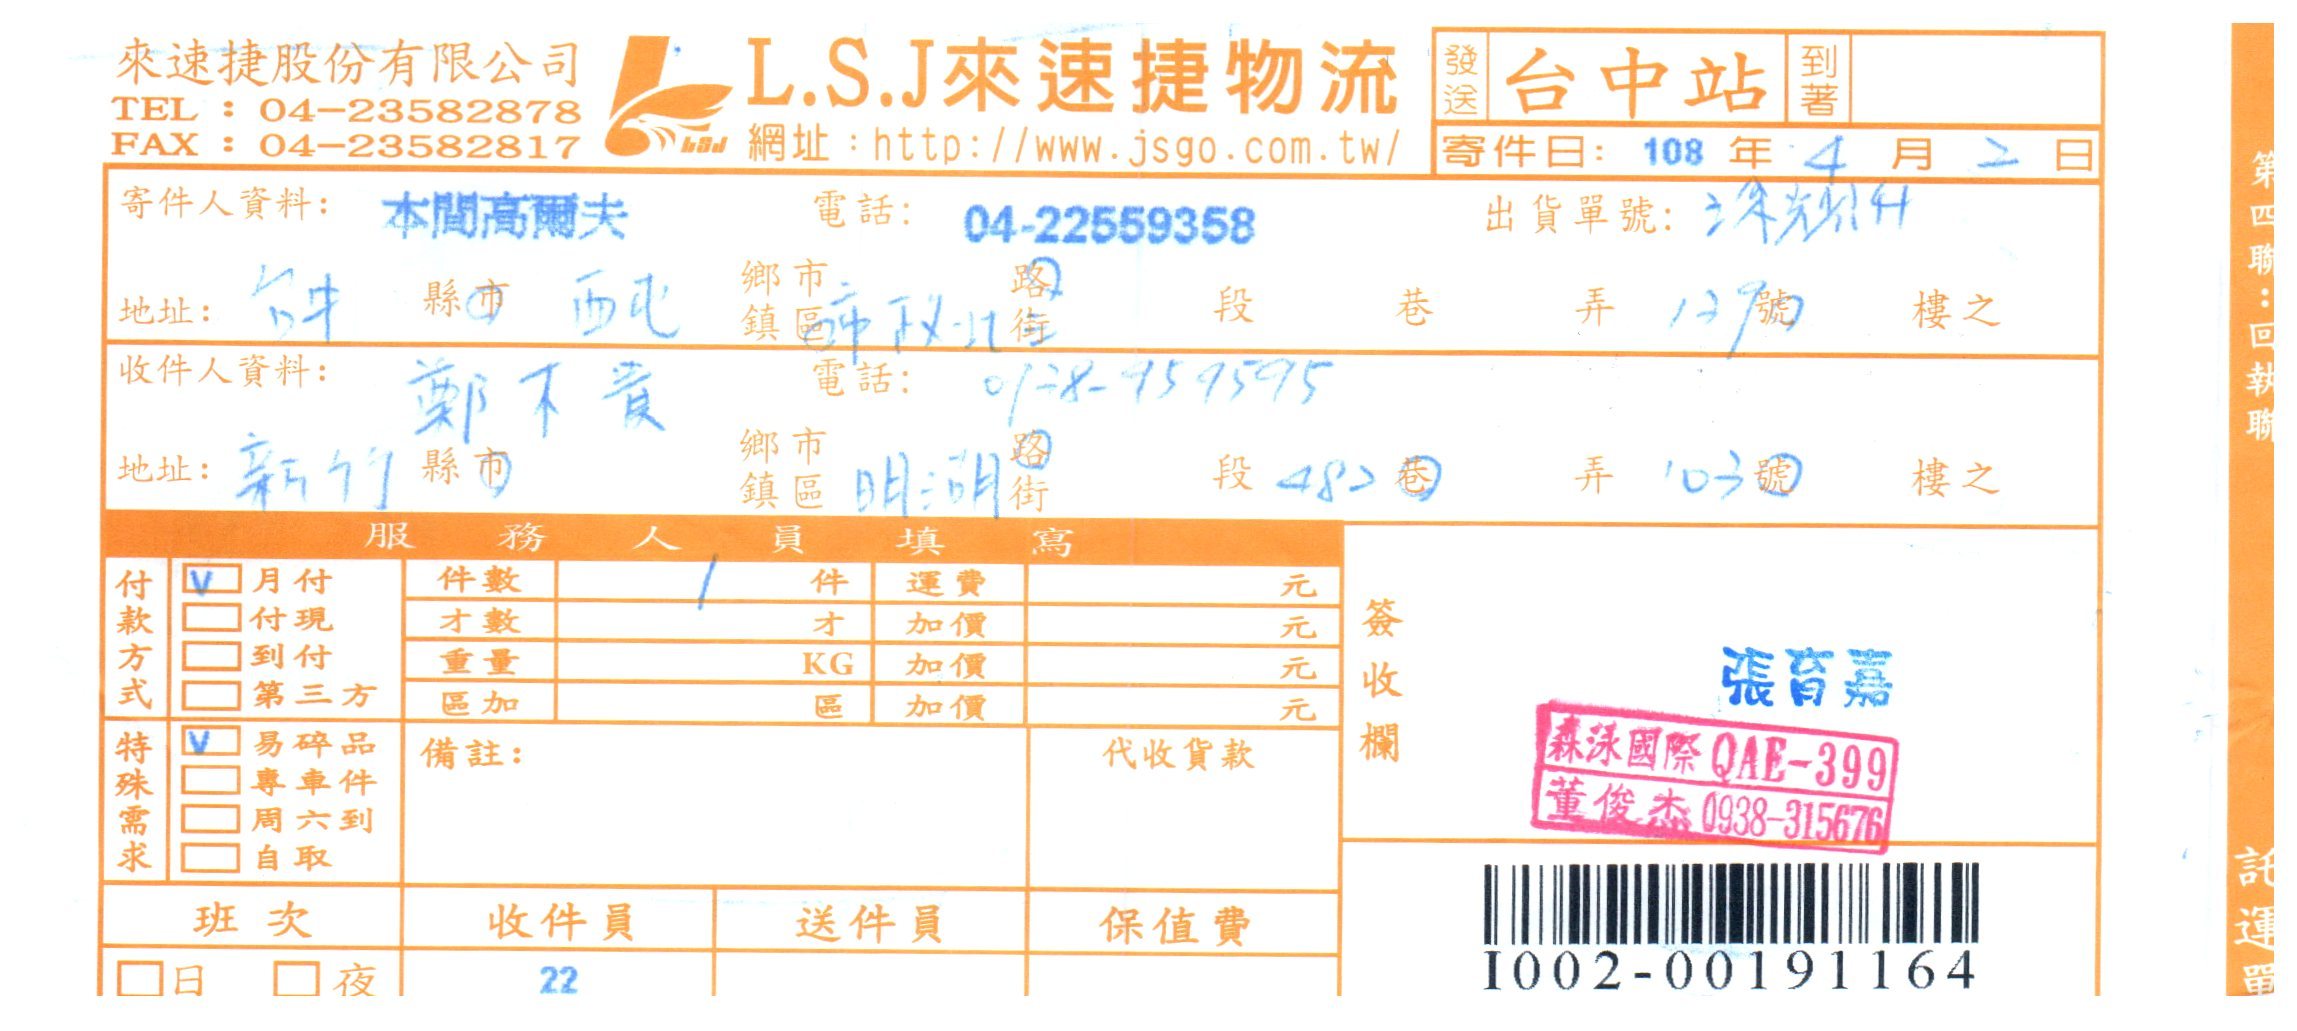 來速捷股份有限公司
TEL : 04-23582878
FAX : 04-23582817
LSJ
L.S.J來速捷物流
網址:http://www.jsgo.com.tw/
發送 台中站 到著
寄件日: 108 年 4 月 2 日
寄件人資料: 本間高爾夫 電話: 04-22559358 出貨單號:
地址: 台中 縣市 西屯 鄉鎮市區 市政北 路街 段 巷 弄 129 號 樓之
收件人資料: 鄭不貴 電話: 0928-959595
地址: 新竹 縣市 鄉鎮市區 明湖 路街 段 482 巷 弄 103 號 樓之
服務人員填寫
付款方式 V 月付 件數 1 件 運費 元
付現 才數 才 加價 元
到付 重量 KG 加價 元
第三方 區加 區 加價 元
特殊需求 V 易碎品 備註: 代收貨款
專車件
周六到
自取
簽收欄
張育嘉
森泳國際 QAE-399
董俊杰 0938-315676
班次 收件員 送件員 保值費
日 夜 22
I002-00191164
第四聯:回執聯
託運單